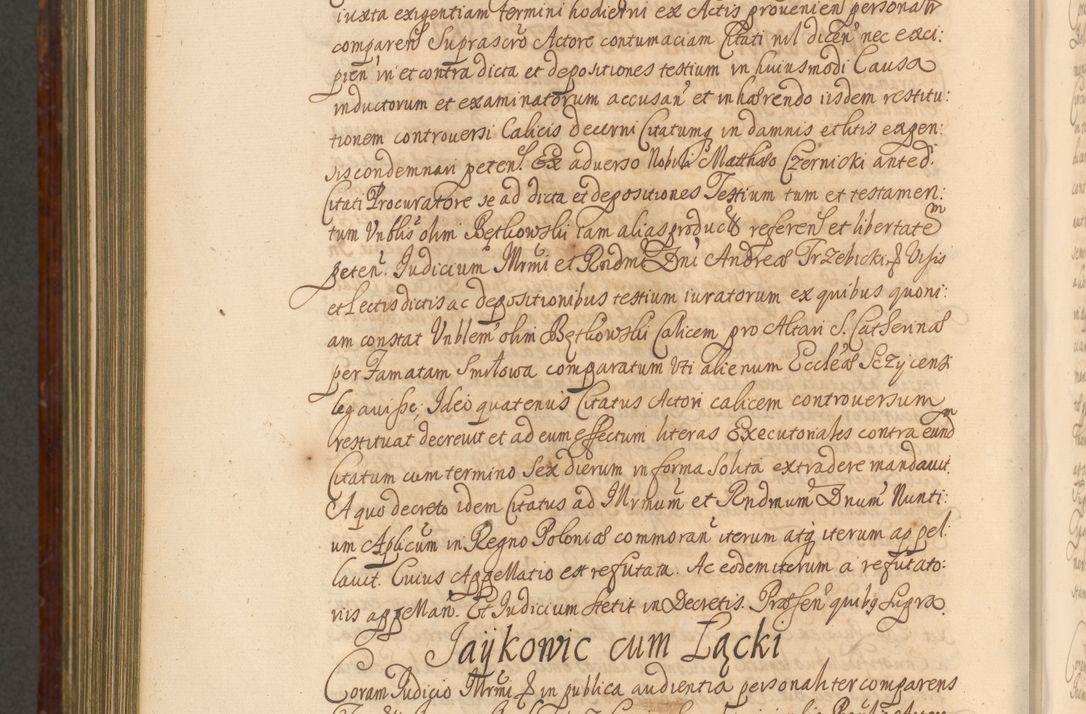 iuxta exigentiam termini hodierni ex Actis provenien personalr
comparens Suprascro Actore contumaciam Citati nil dicen nec exci:
pien in et contra dicta et depositiones testium in huiusmodi Causa
inductorum et examinatorum accusan et inhærendo iisdem restitu:
tionem controversi Calicis decerni Citatumq in damnis et litis expen:
sis condemnari peten. Ex adverso Nobili Matthæo Czernicki anted.
Citati Procuratore se ad dicta et depositiones Testium tum et testamen:
tum Vnblis olim Bętkowski iam alias product referens et libertatem
peten. Iudicium Illrmi et Rndmi Dni Andreæ Trzebicki & Visis
et Lectis dictis ac depositionibus testium iuratorum ex quibus quoni:
am constat Vnblem olim Bętkowski Calicem pro Altari S. Catherinæ
per Famatam Smiłowa comparatum Vti alienum Eccleæ Sczycens
legavisse; Ideo quatenus Citatus Actori calicem controversum
restituat decrevit et ad eum effectum literas Executoriales contra eundm
Citatum cum termino Sex dierum in forma solita extradere mandavit.
A quo decreto idem Citatus ad Illrmum et Rndmum Dnum Nunti:
um Aplicum in Regno Poloniæ commoran iterum atq iterum appel:
lavit. Cuius Appellatio est refutata. Ac eodem iterum a refutato:
riis appellan. Et Iudicium stetit in Decretis. Præsen quibq supra.
Jaÿkowic cum Łącki
Coram Iudicio Illrmi & in publica audientia personaliter comparens